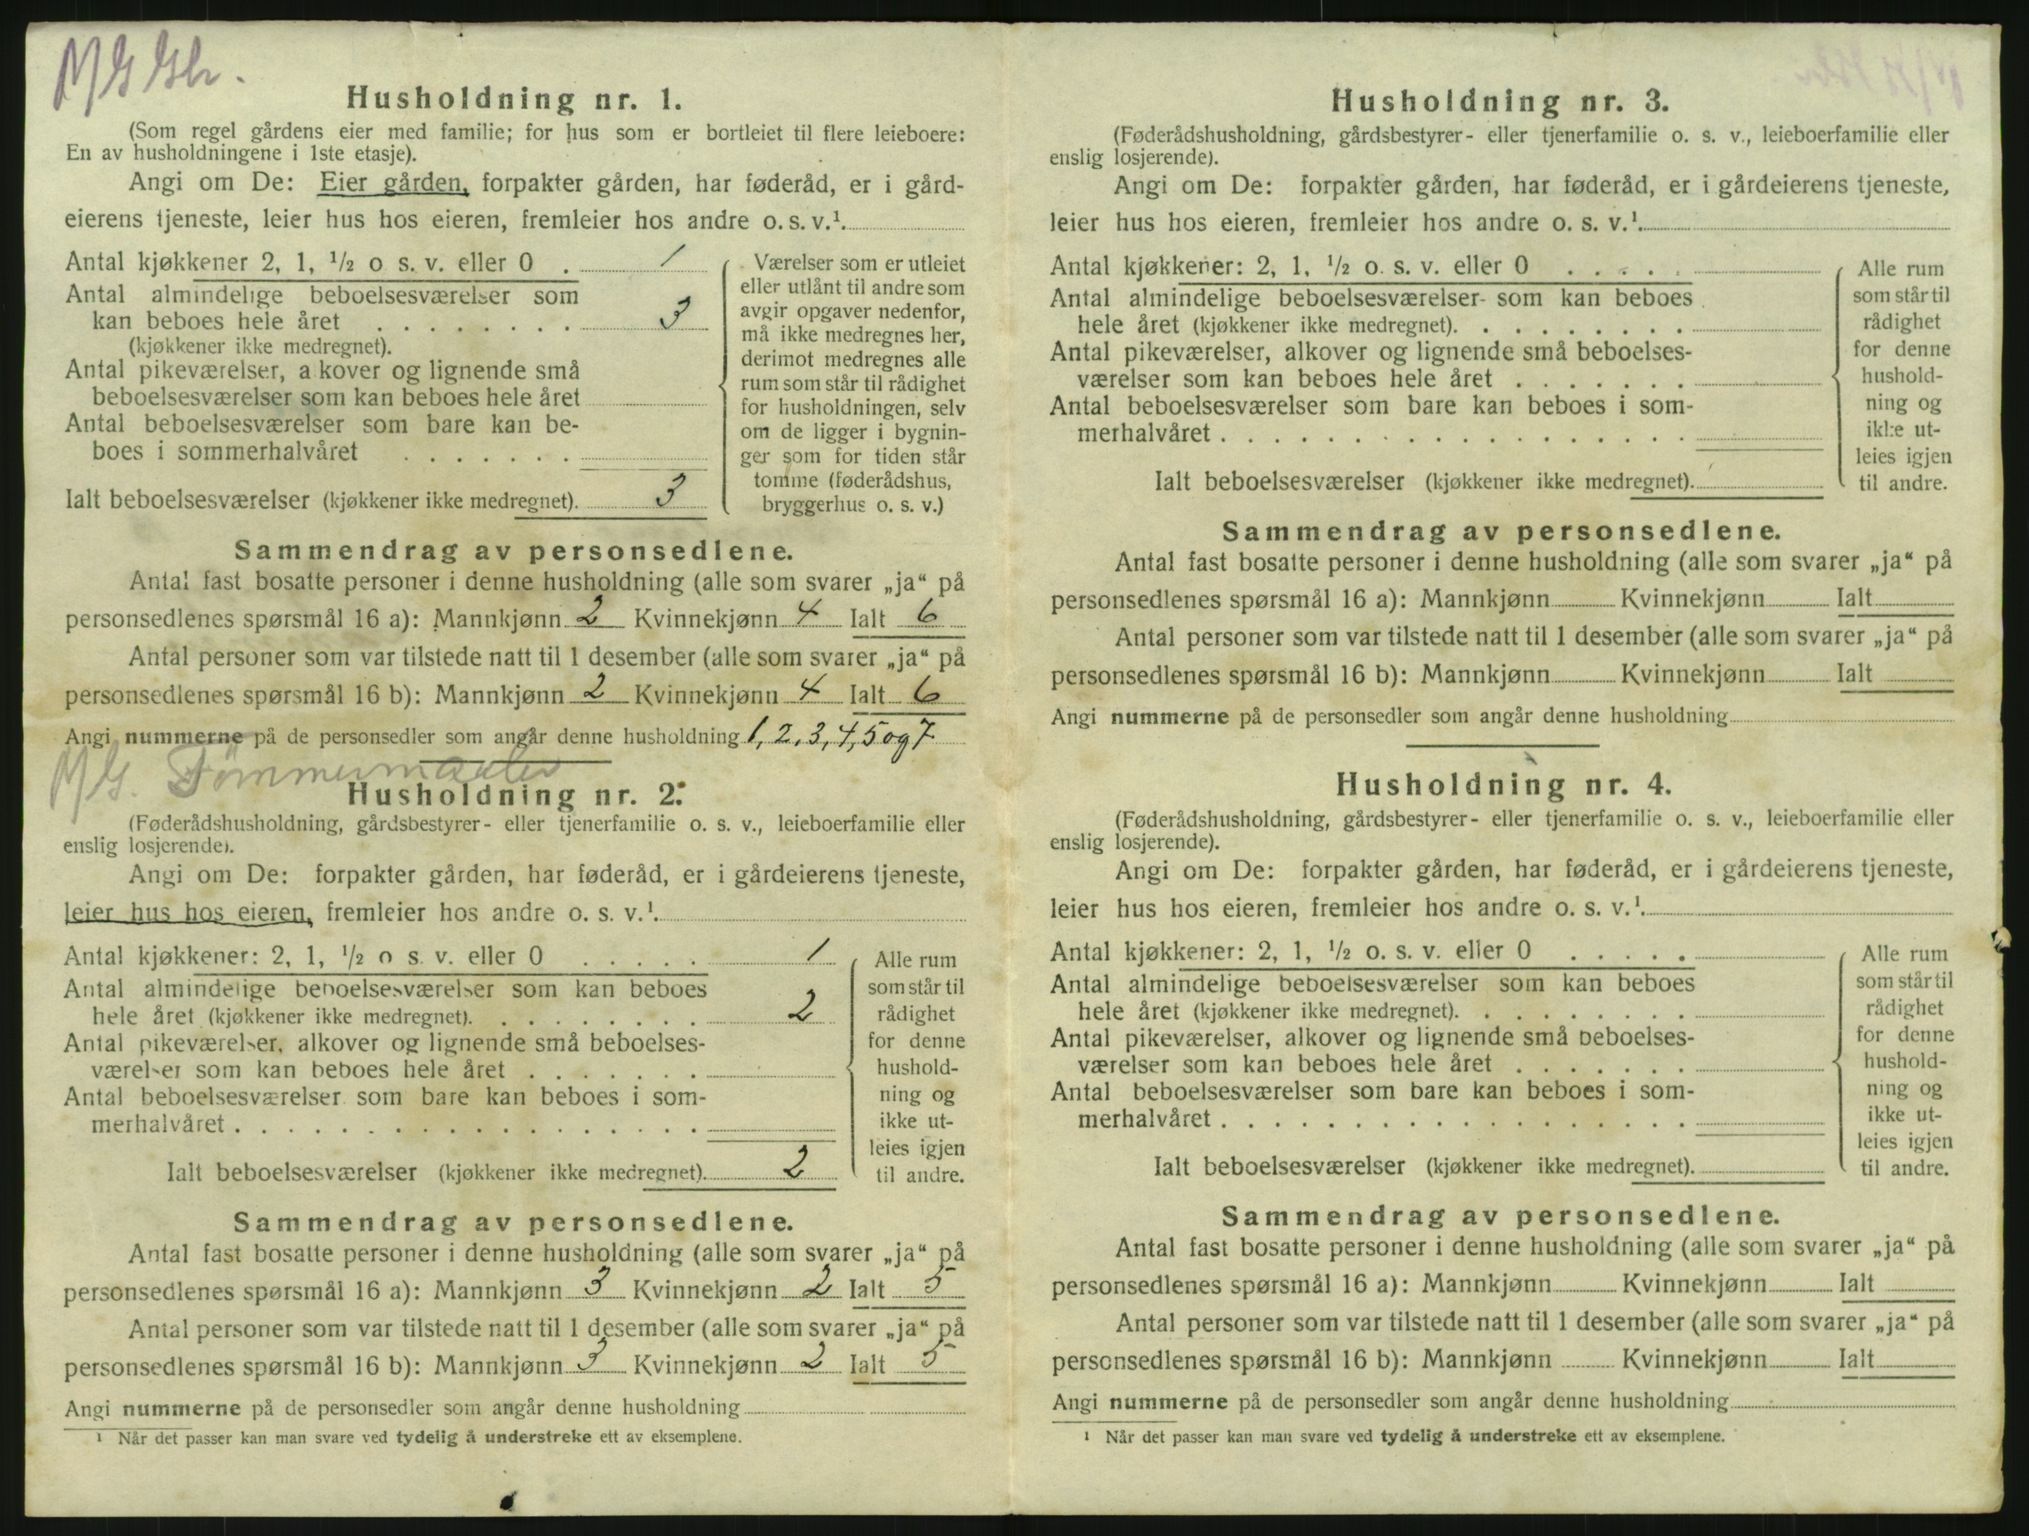 Husholdning nr. 1.
(Som regel gårdens eier med familie; for hus som er bortleiet til flere leieboere:
En av husholdningene i 1ste etasje).
Angi om De: Eier gården, forpakter gården, har føderåd, er i gård-
eierens tjeneste, leier hus hos eieren, fremleier hos andre o. s. v.¹
Antal kjøkkener 2, 1, ½ o s. v. eller 0 . 1
Antal almindelige beboelsesværelser som
kan beboes hele året . . . . . . . . 3
(kjøkkener ikke medregnet).
Antal pikeværelser, a kover og lignende små
beboelsesværelser som kan beboes hele året
Antal beboelsesværelser som bare kan be-
boes i sommerhalvåret . . . . . . .
Ialt beboelsesværelser (kjøkkener ikke medregnet). 3
Værelser som er utleiet
eller utlånt til andre som
avgir opgaver nedenfor,
må ikke medregnes her,
derimot medregnes alle
rum som står til rådighet
for husholdningen, selv
om de ligger i bygnin-
ger som for tiden står
tomme (føderådshus,
bryggerhus o. s. v.)
Sammendrag av personsedlene.
Antal fast bosatte personer i denne husholdning (alle som svarer „ja“ på
personsedlenes spørsmål 16 a): Mannkjønn 2 Kvinnekjønn 4 Ialt 6
Antal personer som var tilstede natt til 1 desember (alle som svarer „ja“ på
personsedlenes spørsmål 16 b): Mannkjønn 2 Kvinnekjønn 4 Ialt 6
Angi nummerne på de personsedler som angår denne husholdning 1, 2, 3, 4, 5 og 7
Tømmermaaler
Husholdning nr. 2.
(Føderådshusholdning, gårdsbestyrer- eller tjenerfamilie o. s. v., leieboerfamilie eller
enslig losjerende).
Angi om De: forpakter gården, har føderåd, er i gårdeierens tjeneste,
leier hus hos eieren, fremleier hos andre o. s. v.¹
Antal kjøkkener: 2, 1, ½ o s. v. eller 0 . . . . . 1
Antal almindelige beboelsesværelser som kan beboes
hele året (kjøkkener ikke medregnet). . . . . . . . . 2
Antal pikeværelser, alkover og lignende små beboelses-
værelser som kan beboes hele året . . . . . . .
Antal beboelsesværelser som bare kan beboes i som-
merhalvåret . . . . . . . . . . . . . . . . . .
Ialt beboelsesværelser (kjøkkener ikke medregnet). 2
Alle rum
som står til
rådighet
for denne
hushold-
ning og
ikke ut-
leies igjen
til andre.
Sammendrag av personsedlene.
Antal fast bosatte personer i denne husholdning (alle som svarer „ja“ på
personsedlenes spørsmål 16 a): Mannkjønn 3 Kvinnekjønn 2 Ialt 5
Antal personer som var tilstede natt til 1 desember (alle som svarer „ja“ på
personsedlenes spørsmål 16 b): Mannkjønn 3 Kvinnekjønn 2 Ialt 5
Angi nummerne på de personsedler som angår denne husholdning
¹ Når det passer kan man svare ved tydelig å understreke ett av eksemplene.
Husholdning nr. 3.
(Føderådshusholdning, gårdsbestyrer- eller tjenerfamilie o. s. v., leieboerfamilie eller
enslig losjerende).
Angi om De: forpakter gården, har føderåd, er i gårdeierens tjeneste,
leier hus hos eieren, fremleier hos andre o. s. v.¹
Antal kjøkkener: 2, 1, ½ o. s. v. eller 0 . . . . .
Antal almindelige beboelsesværelser som kan beboes
hele året (kjøkkener ikke medregnet). . . . . . . . .
Antal pikeværelser, alkover og lignende små beboelses-
værelser som kan beboes hele året . . . . . . .
Antal beboelsesværelser som bare kan beboes i som-
merhalvåret . . . . . . . . . . . . . . . . . .
Ialt beboelsesværelser (kjøkkener ikke medregnet).
Alle rum
som står til
rådighet
for denne
hushold-
ning og
ikke ut-
leies igjen
til andre.
Sammendrag av personsedlene.
Antal fast bosatte personer i denne husholdning (alle som svarer „ja“ på
personsedlenes spørsmål 16 a): Mannkjønn Kvinnekjønn Ialt
Antal personer som var tilstede natt til 1 desember (alle som svarer „ja“ på
personsedlenes spørsmål 16 b): Mannkjønn Kvinnekjønn Ialt
Angi nummerne på de personsedler som angår denne husholdning
Husholdning nr. 4.
(Føderådshusholdning, gårdsbestyrer- eller tjenerfamilie o. s. v., leieboerfamilie eller
enslig losjerende).
Angi om De: forpakter gården, har føderåd, er i gårdeierens tjeneste,
leier hus hos eieren, fremleier hos andre o. s. v.¹
Antal kjøkkener: 2, 1, ½ o. s. v. eller 0 . . . . .
Antal almindelige beboelsesværelser som kan beboes
hele året (kjøkkener ikke medregnet). . . . . . . . .
Antal pikeværelser, alkover og lignende små beboelses-
værelser som kan beboes hele året . . . . . . .
Antal beboelsesværelser som bare kan beboes i som-
merhalvåret . . . . . . . . . . . . . . . . . .
Ialt beboelsesværelser (kjøkkener ikke medregnet).
Alle rum
som står til
rådighet
for denne
hushold-
ning og
ikke ut-
leies igjen
til andre.
Sammendrag av personsedlene.
Antal fast bosatte personer i denne husholdning (alle som svarer „ja“ på
personsedlenes spørsmål 16 a): Mannkjønn Kvinnekjønn Ialt
Antal personer som var tilstede natt til 1 desember (alle som svarer „ja“ på
personsedlenes spørsmål 16 b): Mannkjønn Kvinnekjønn Ialt
Angi nummerne på de personsedler som angår denne husholdning
¹ Når det passer kan man svare ved tydelig å understreke ett av eksemplene.